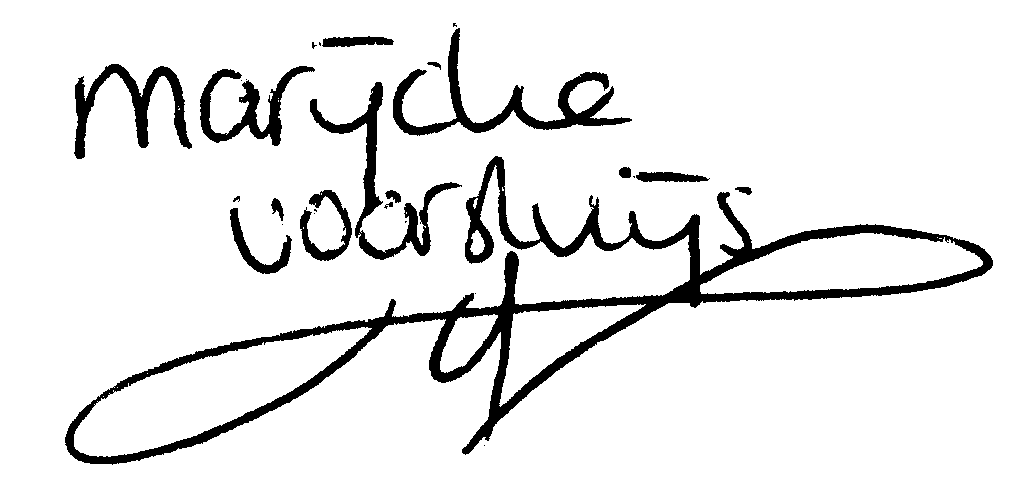 marijche
voorsluijs